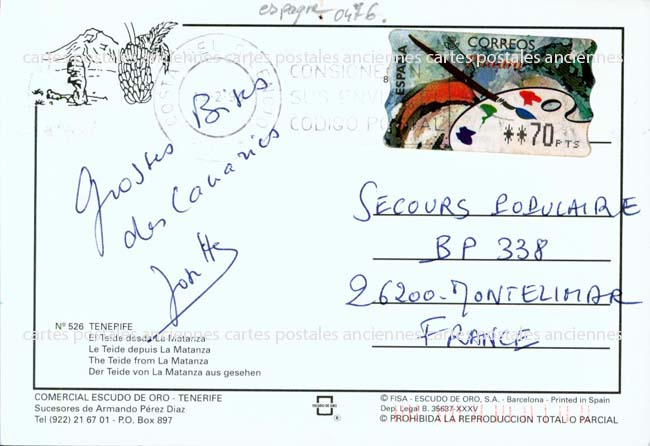 espagne 0476.
cartes postales anciennes cartes postales anciennes cartes postales anciennes
CORREOS
ESPAÑA
8
**70 PTS
CONSIGNE
SUS ENVI
CODIGO POSTAL
Grosses Bises
des Canaries
SECOURS POPULAIRE
BP 338
26200-MONTELIMAR
FRANCE
cartes postales anciennes cartes postales anciennes cartes postales anciennes
Nº 526 TENERIFE
El Teide desde La Matanza
Le Teide depuis La Matanza
The Teide from La Matanza
Der Teide von La Matanza aus gesehen
COMERCIAL ESCUDO DE ORO - TENERIFE
Sucesores de Armando Pérez Diaz
Tel (922) 21 67 01 - P.O. Box 897
ESCUDO DE ORO
© FISA - ESCUDO DE ORO, S.A. - Barcelona - Printed in Spain
Dep. Legal B. 35637-XXXV
© PROHIBIDA LA REPRODUCCION TOTAL O PARCIAL